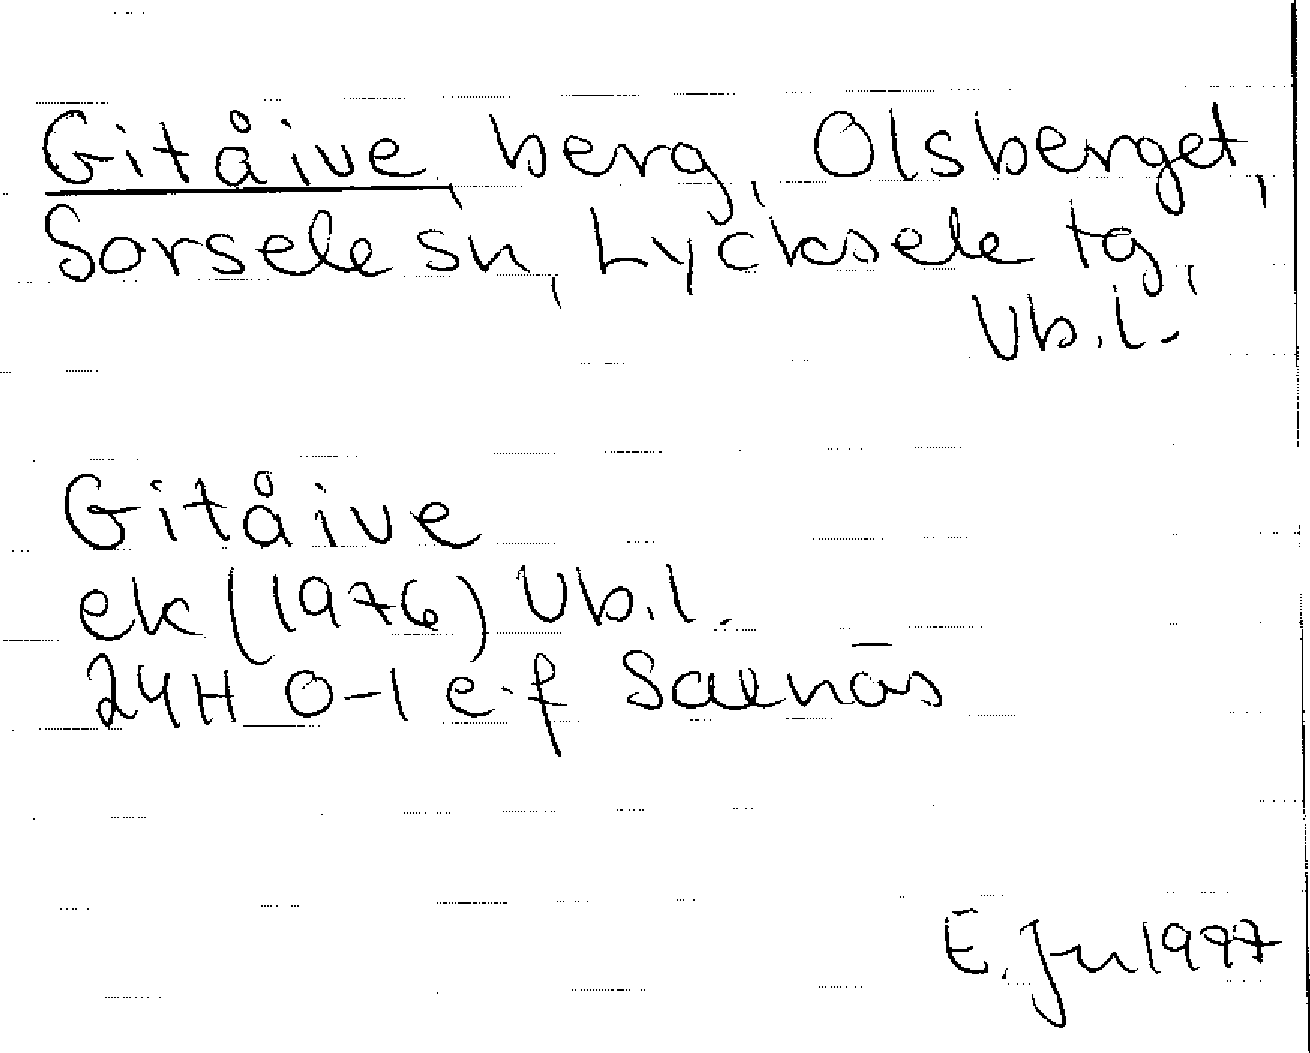 Gitåive, berg, Olsberget,
Sorsele sn, Lycksele tg,
Vb.l.
Gitåive
ek (1976) Vb.l.
24H 0-1 e-f Saxnäs
E. Jn 1997